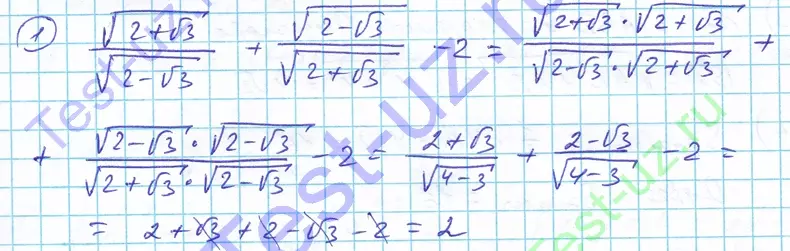 ① √(2+√3)/√(2-√3) + √(2-√3)/√(2+√3) -2 = √(2+√3)·√(2+√3)/√(2-√3)·√(2+√3) +
+ √(2-√3)·√(2-√3)/√(2+√3)·√(2-√3) -2 = 2+√3/√(4-3) + 2-√3/√(4-3) -2 =
= 2+√3+2-√3-2=2
Test-uz.ru
Test-uz.ru
Test-uz.ru